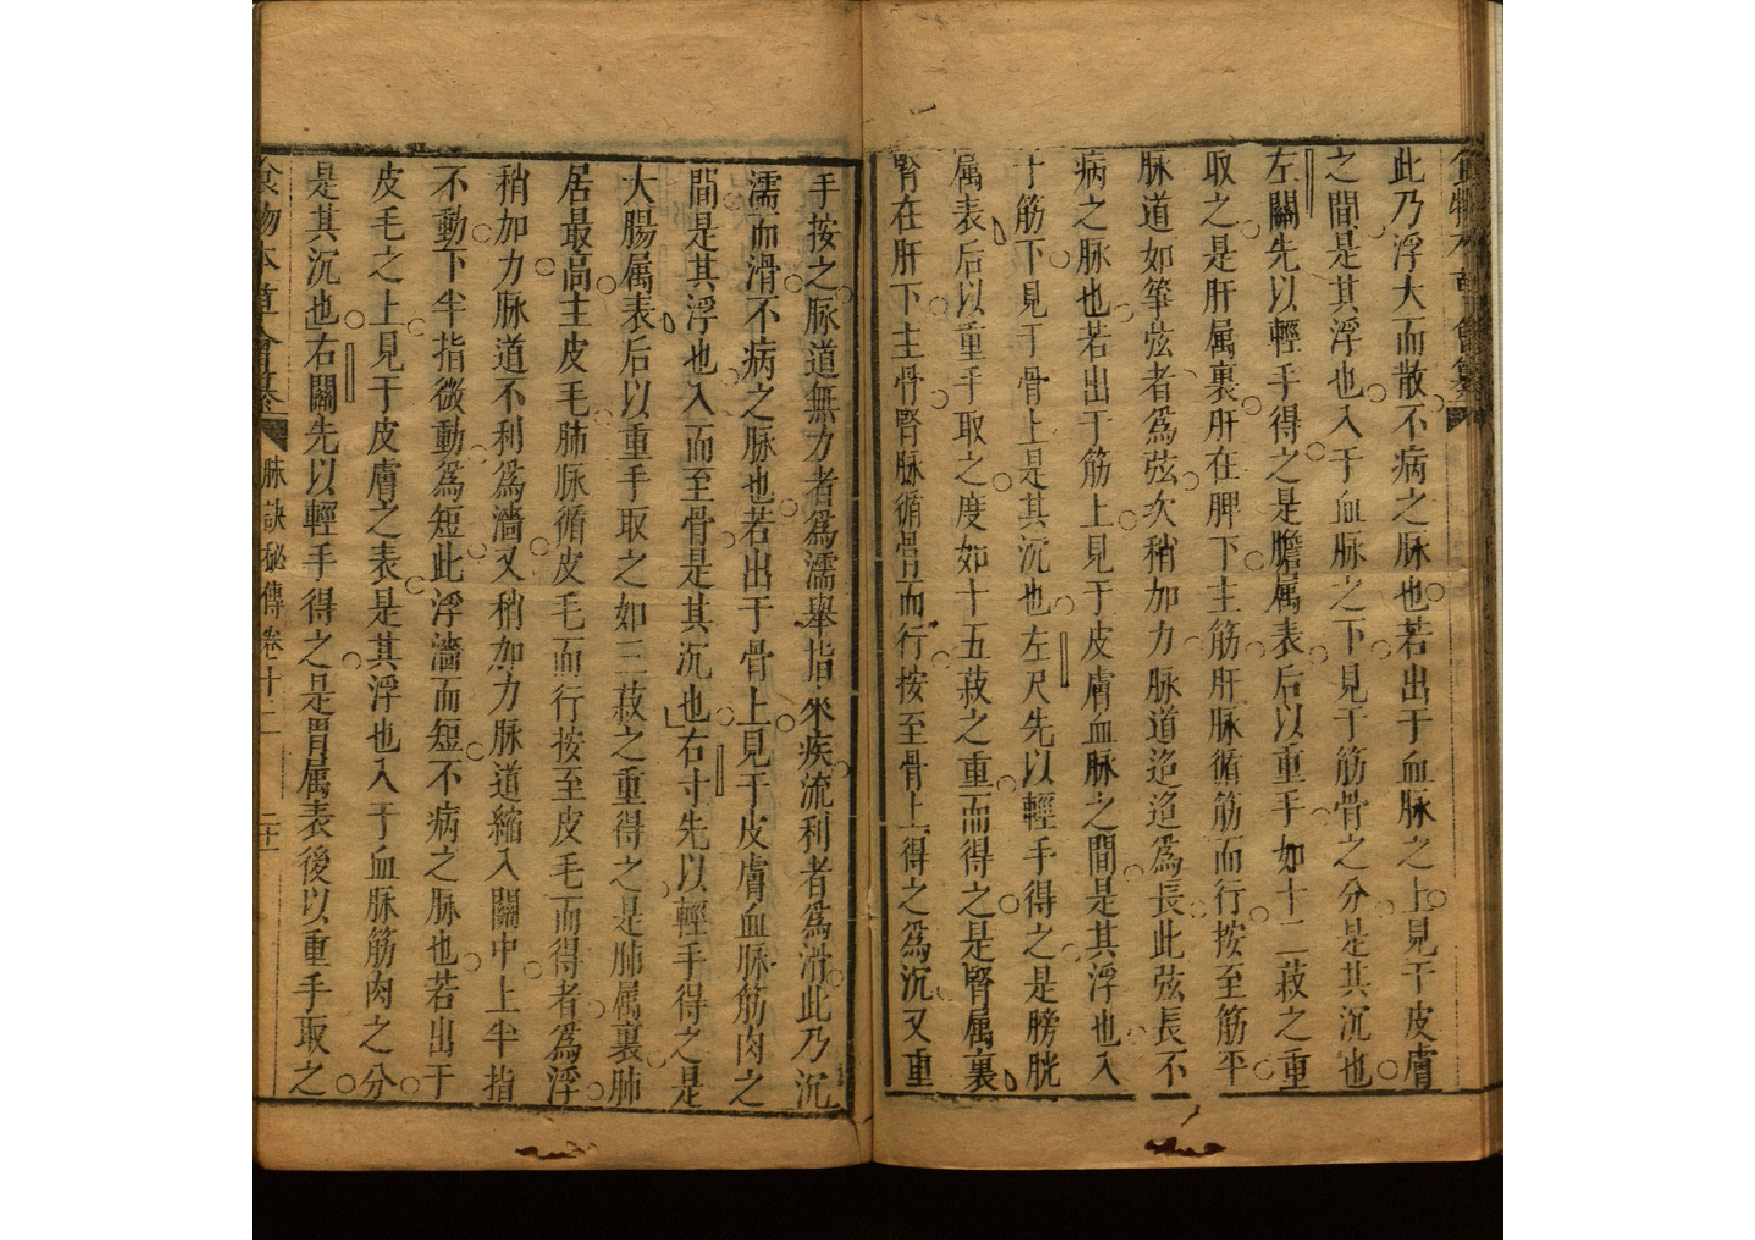 食物本草會纂
此乃浮大而散不病之脉也若出于血脉之上見于皮膚
之間是其浮也入于血脉之下見于筋骨之分是其沉也
左關先以輕手得之是膽属表后以重手如十二菽之重
取之是肝属裏肝在脾下主筋肝脉循筋而行按至筋平
脉道如筝弦者爲弦次稍加力脉道迢迢爲長此弦長不
病之脉也若出于筋上見于皮膚血脉之間是其浮也入
于筋下見于骨上是其沉也左尺先以輕手得之是膀胱
属表后以重手取之度如十五菽之重而得之是腎属裏
腎在肝下主骨腎脉循骨而行按至骨上得之爲沉又重
手按之脉道無力者爲濡舉指來疾流利者爲滑此乃沉
濡而滑不病之脉也若出于骨上見于皮膚血脉筋肉之
間是其浮也入而至骨是其沉也右寸先以輕手得之是
大腸属表后以重手取之如三菽之重得之是肺属裏肺
居最高主皮毛肺脉循皮毛而行按至皮毛而得者爲浮
稍加力脉道不利爲濇又稍加力脉道縮入關中上半指
不動下半指微動爲短此浮濇而短不病之脉也若出于
皮毛之上見于皮膚之表是其浮也入于血脉筋肉之分
是其沉也右關先以輕手得之是胃属表後以重手取之
食物本草會纂 脉訣秘傳卷十二